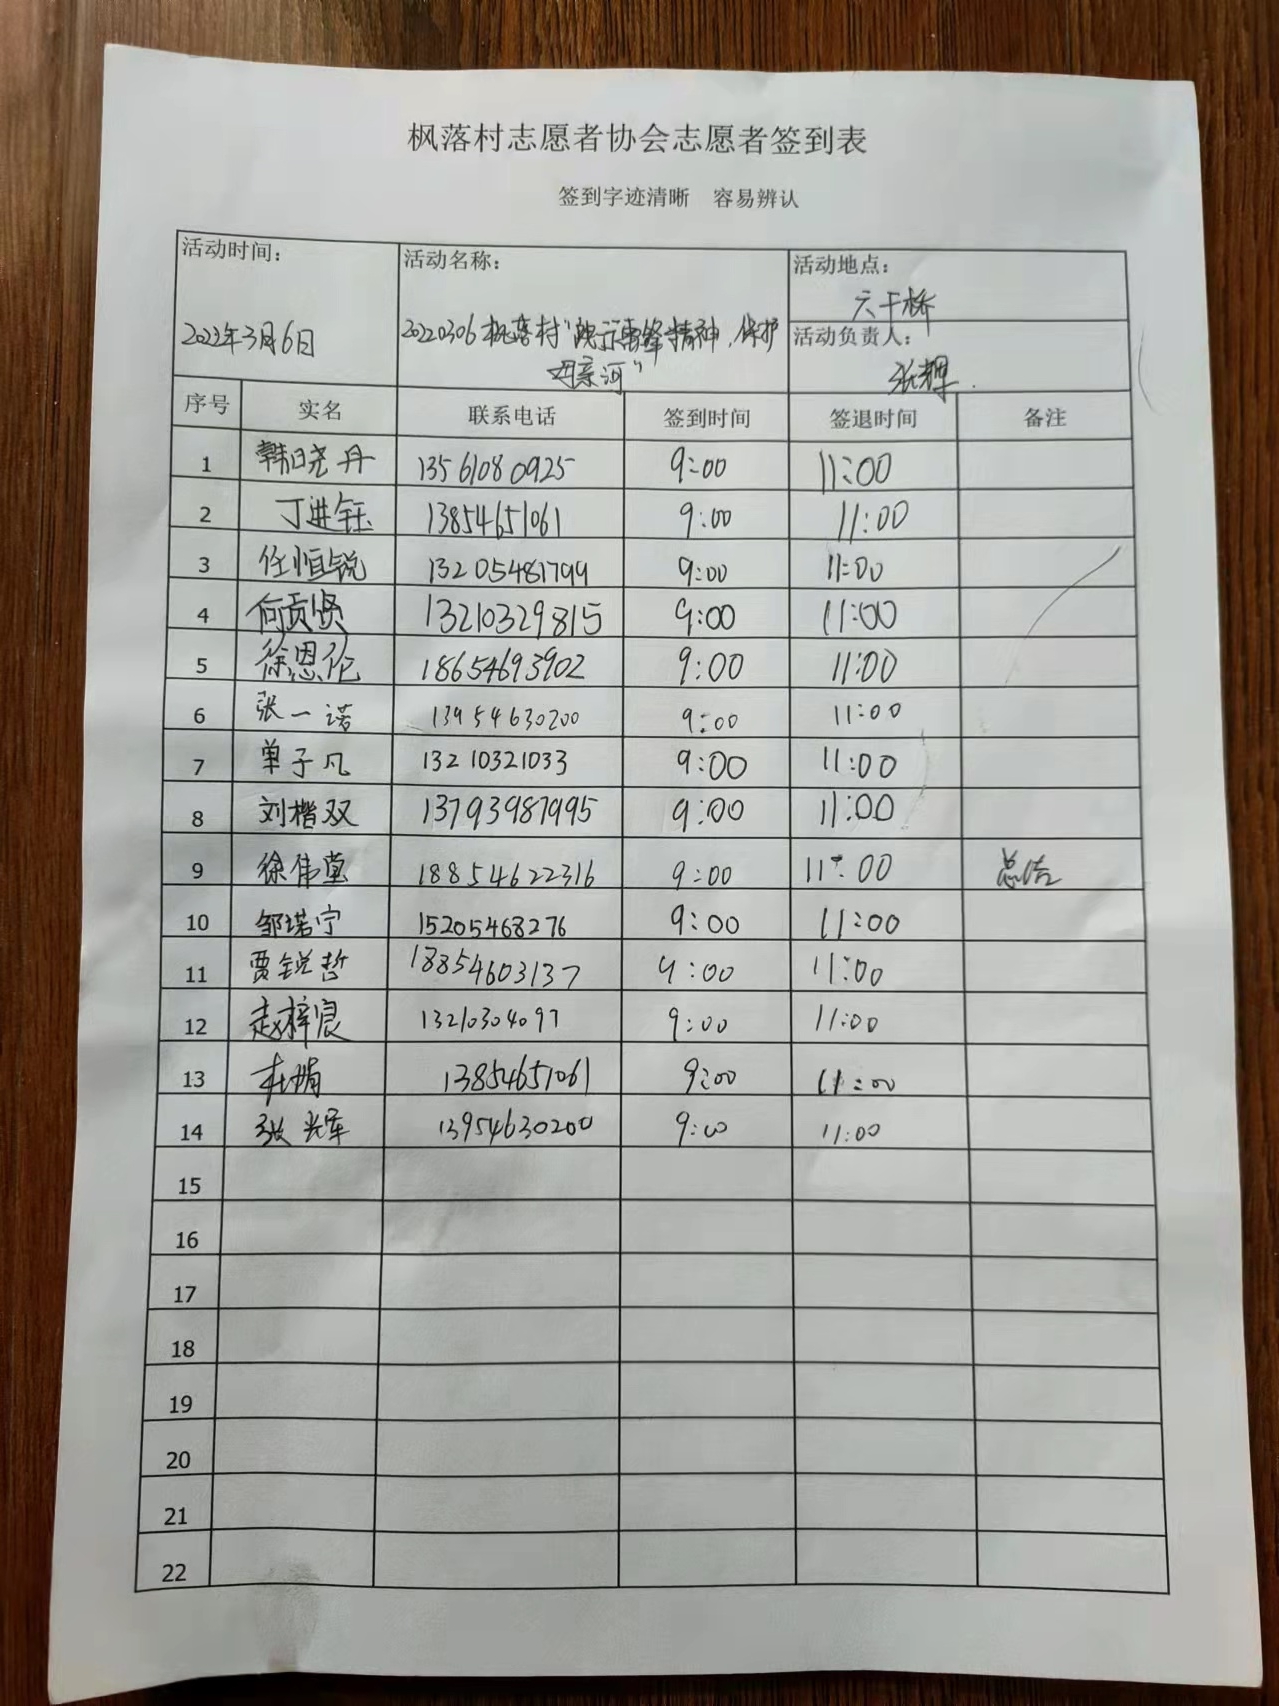 枫落村志愿者协会志愿者签到表
签到字迹清晰 容易辨认
活动时间： 活动名称： 活动地点：
六干桥
2022年3月6日 20220306枫落村“践行雷锋精神，保护 活动负责人：
母亲河” 张辉
序号 实名 联系电话 签到时间 签退时间 备注
1 韩晓丹 13561080925 9:00 11:00
2 丁进钰 13854651061 9:00 11:00
3 任恒锐 13205481799 9:00 11:00
4 何贡贤 13210329815 9:00 11:00
5 徐恩伦 18654693902 9:00 11:00
6 张一诺 13954630200 9:00 11:00
7 单子凡 13210321033 9:00 11:00
8 刘楷双 13793987995 9:00 11:00
9 徐伟堂 18854622316 9:00 11:00 总结
10 邹诺宁 15205468276 9:00 11:00
11 贾锐哲 18854603137 9:00 11:00
12 赵梓 13210304097 9:00 11:00
13 杜 13854651061 9:00 11:00
14 张光军 13954630200 9:00 11:00
15
16
17
18
19
20
21
22